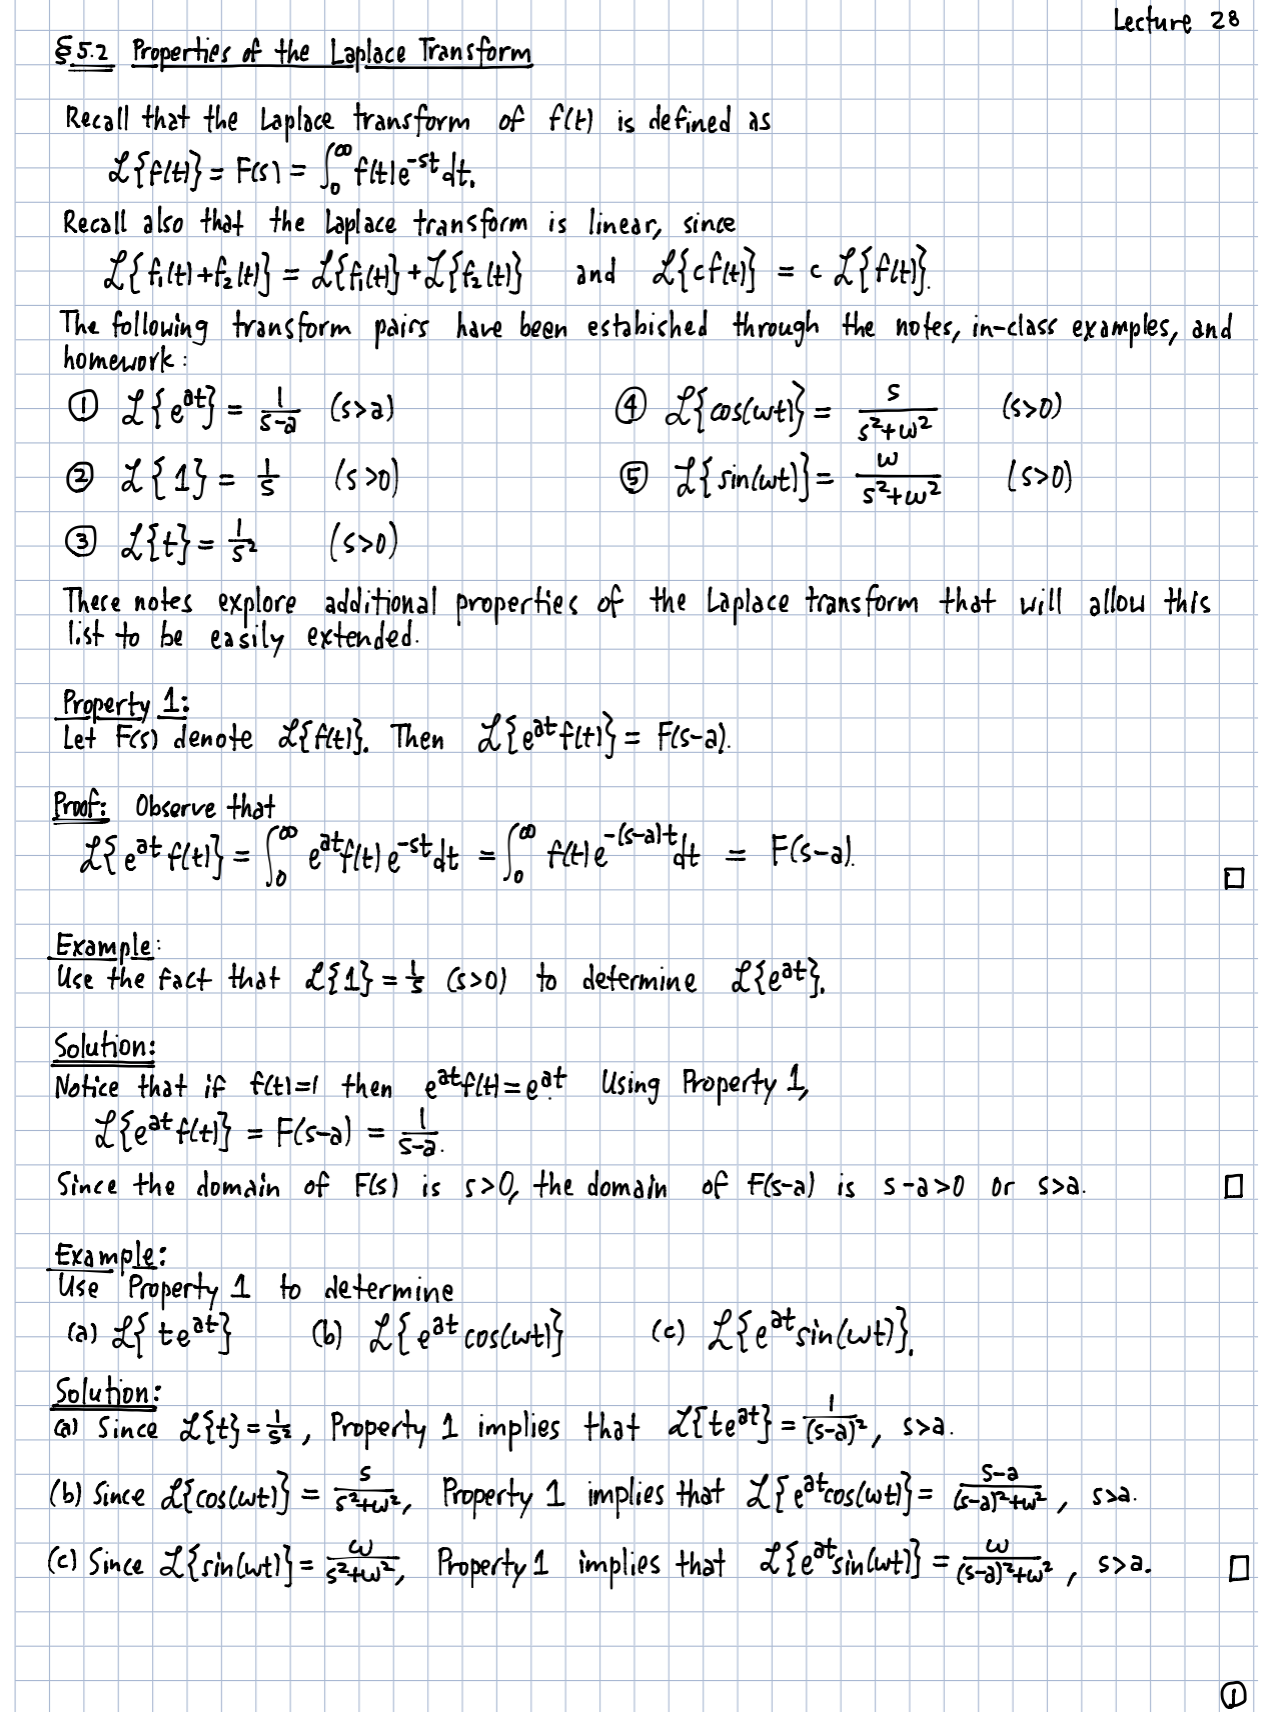 Lecture 28
§5.2 Properties of the Laplace Transform
Recall that the Laplace transform of f(t) is defined as
ℒ{f(t)} = F(s) = ∫₀^∞ f(t)e^{-st}dt.
Recall also that the Laplace transform is linear, since
ℒ{f₁(t)+f₂(t)} = ℒ{f₁(t)}+ℒ{f₂(t)} and ℒ{cf(t)} = c ℒ{f(t)}.
The following transform pairs have been estabished through the notes, in-class examples, and
homework:
① ℒ{e^{at}} = 1/(s-a) (s>a) ④ ℒ{cos(ωt)} = s/(s²+ω²) (s>0)
② ℒ{1} = 1/s (s>0) ⑤ ℒ{sin(ωt)} = ω/(s²+ω²) (s>0)
③ ℒ{t} = 1/s² (s>0)
These notes explore additional properties of the Laplace transform that will allow this
list to be easily extended.
Property 1:
Let F(s) denote ℒ{f(t)}. Then ℒ{e^{at}f(t)} = F(s-a).
Proof: Observe that
ℒ{e^{at}f(t)} = ∫₀^∞ e^{at}f(t)e^{-st}dt = ∫₀^∞ f(t)e^{-(s-a)t}dt = F(s-a). □
Example:
Use the fact that ℒ{1} = 1/s (s>0) to determine ℒ{e^{at}}.
Solution:
Notice that if f(t)=1 then e^{at}f(t)=e^{at}. Using Property 1,
ℒ{e^{at}f(t)} = F(s-a) = 1/(s-a).
Since the domain of F(s) is s>0, the domain of F(s-a) is s-a>0 or s>a. □
Example:
Use Property 1 to determine
(a) ℒ{te^{at}} (b) ℒ{e^{at}cos(ωt)} (c) ℒ{e^{at}sin(ωt)}.
Solution:
(a) Since ℒ{t} = 1/s², Property 1 implies that ℒ{te^{at}} = 1/(s-a)², s>a.
(b) Since ℒ{cos(ωt)} = s/(s²+ω²), Property 1 implies that ℒ{e^{at}cos(ωt)} = (s-a)/((s-a)²+ω²), s>a.
(c) Since ℒ{sin(ωt)} = ω/(s²+ω²), Property 1 implies that ℒ{e^{at}sin(ωt)} = ω/((s-a)²+ω²), s>a. □
①